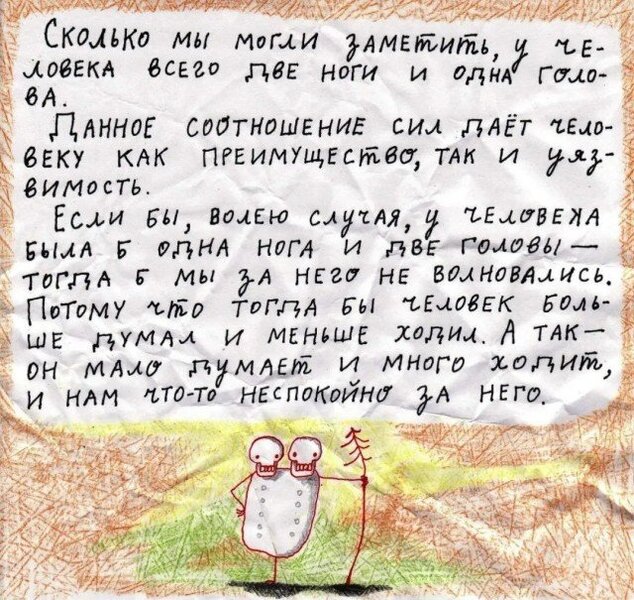 Сколько мы могли заметить, у че-
ловека всего две ноги и одна голо-
ва.
Данное соотношение сил даёт чело-
веку как преимущество, так и уяз-
вимость.
Если бы, волею случая, у человека
была б одна нога и две головы —
тогда б мы за него не волновались.
Потому что тогда бы человек боль-
ше думал и меньше ходил. А так —
он мало думает и много ходит,
и нам что-то неспокойно за него.